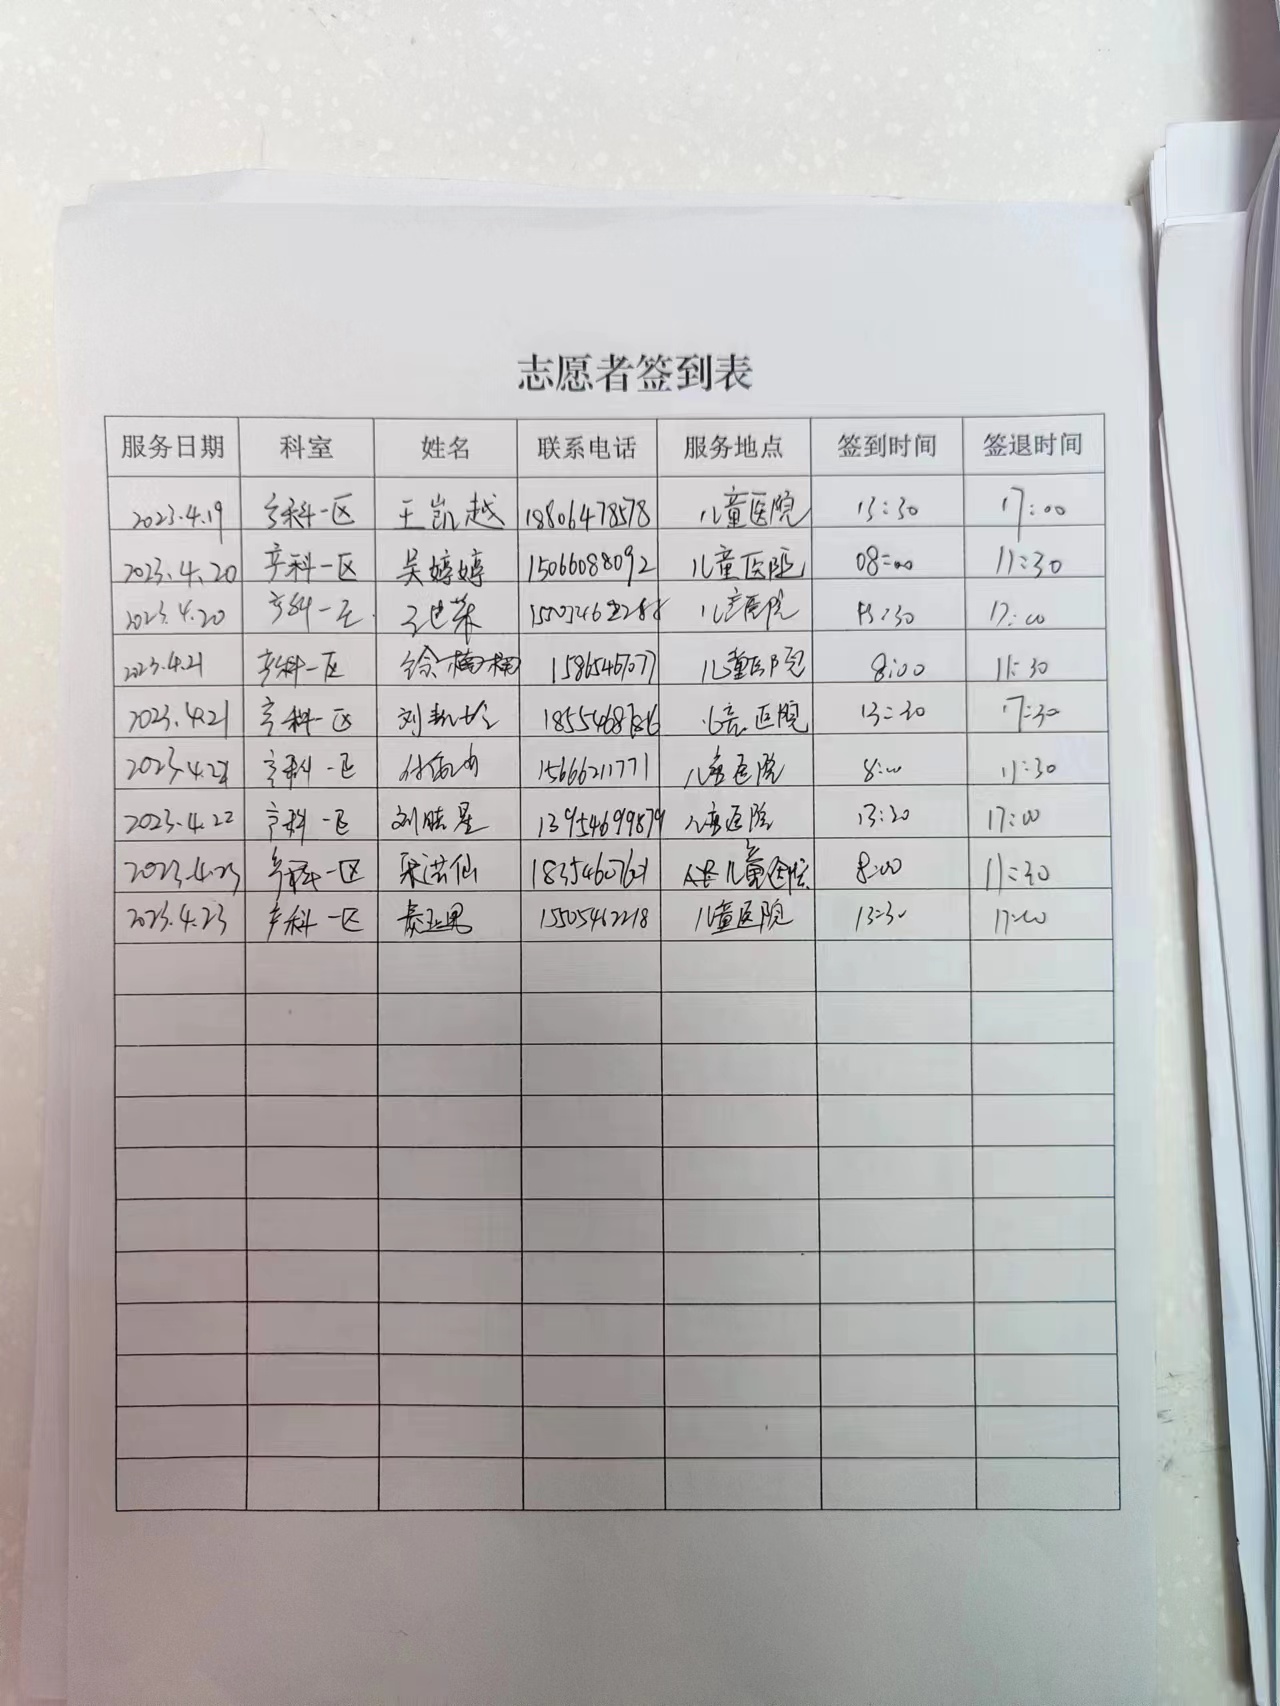 志愿者签到表
服务日期 科室 姓名 联系电话 服务地点 签到时间 签退时间
2023.4.19 产科一区 王凯越 18806478578 儿童医院 13:30 17:00
2023.4.20 产科一区 吴婷婷 15066088092 儿童医院 08:00 11:30
2023.4.20 产科一区 儿童医院 13:30 17:00
2023.4.21 产科一区 徐楠楠 儿童医院 8:00 11:30
2023.4.21 产科一区 刘 儿童医院 13:30 17:30
2023.4.22 产科一区 15666211771 儿童医院 8:00 11:30
2023.4.22 产科一区 刘晓星 13954699879 儿童医院 13:30 17:00
2023.4.23 产科一区 儿童医院 8:00 11:30
2023.4.23 产科一区 15505462218 儿童医院 13:30 17:00